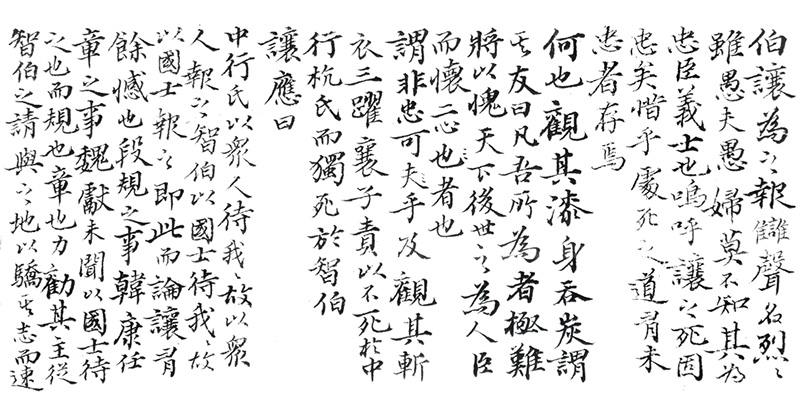 伯讓為之報讎聲名烈々
雖愚夫愚婦莫不知其為
忠臣義士也嗚呼讓之死固
忠矣惜乎處死之道有未
忠者存焉
何也觀其漆身吞炭謂
其友曰凡吾所為者極難
將以愧天下後世之為人臣
而懷二心也者也
謂非忠可夫乎及觀其斬
衣三躍襄子責以不死於中
行杭氏而獨死於智伯
讓應曰
中行氏以衆人待我々故以衆
人報之智伯以國士待我々故
以國士報之即此而論讓有
餘憾也段規之事韓康任
章之事魏獻未聞以國士待
之也而規也章也力勸其主從
智伯之請與之地以驕其志而速